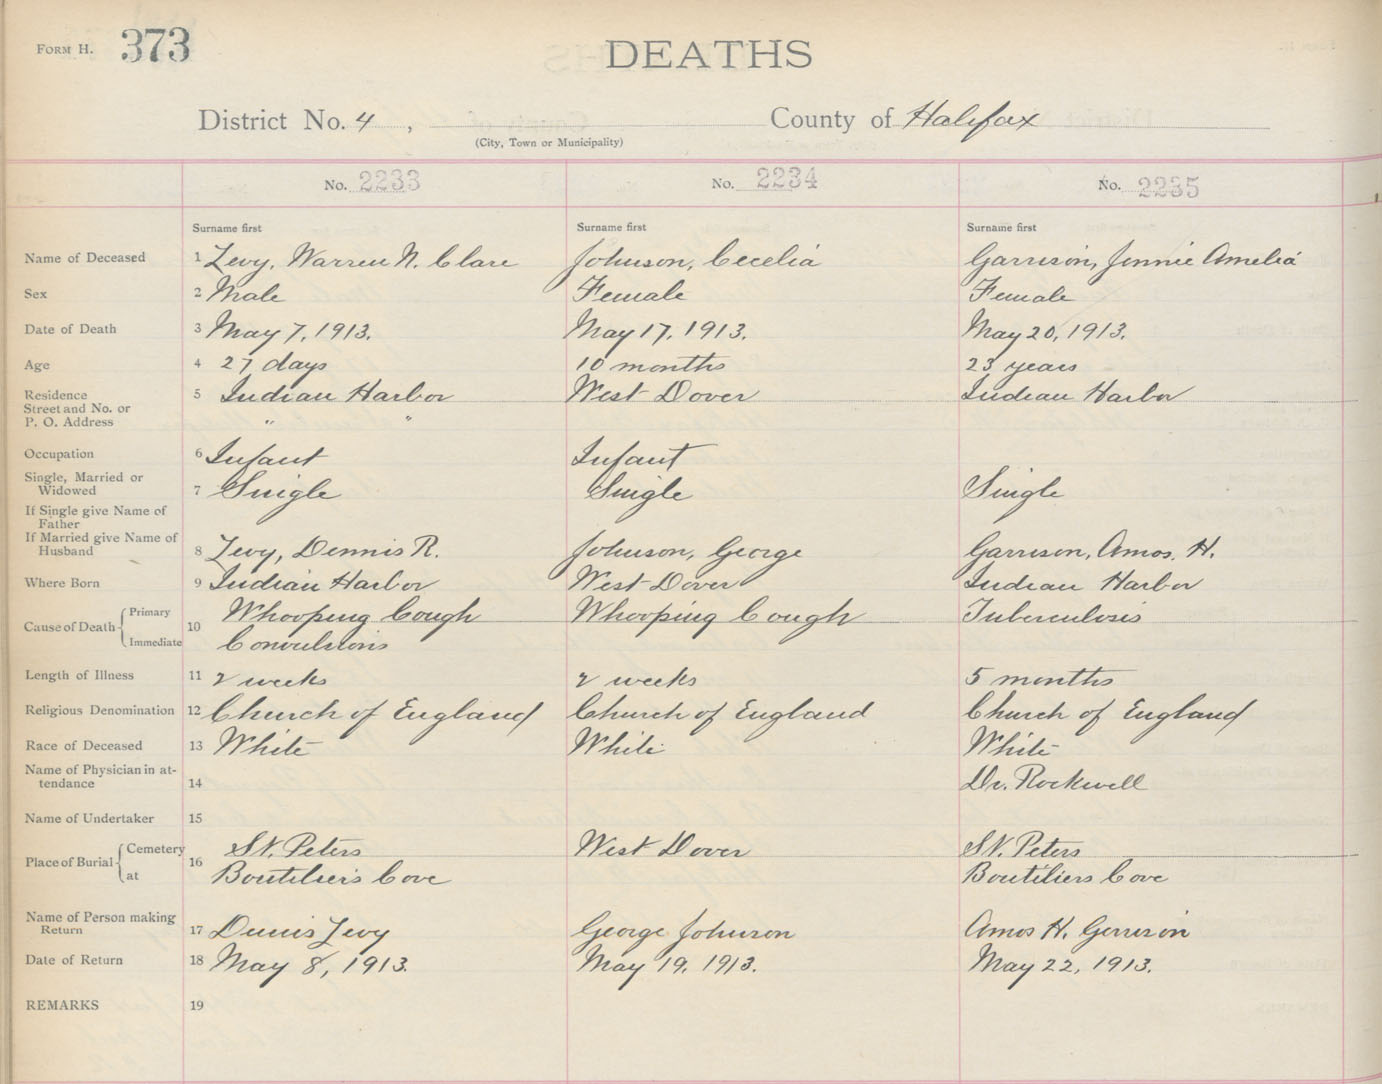 FORM H. 373
DEATHS
District No. 4, County of Halifax
(City, Town or Municipality)
No. 2233 No. 2234 No. 2235
Surname first Surname first Surname first
Name of Deceased 1 Zevy, Warren N. Clare Johnson, Cecelia Garrison, Jennie Amelia
Sex 2 Male Female Female
Date of Death 3 May 7, 1913. May 17, 1913. May 20, 1913.
Age 4 27 days 10 months 23 years
Residence 5 Indian Harbor West Dover Indian Harbor
Street and No. or
P. O. Address " "
Occupation 6 Infant Infant
Single, Married or
Widowed 7 Single Single Single
If Single give Name of
Father
If Married give Name of
Husband 8 Zevy, Dennis R. Johnson, George Garrison, Amos. H.
Where Born 9 Indian Harbor West Dover Indian Harbor
Cause of Death Primary 10 Whooping Cough Whooping Cough Tuberculosis
Immediate Convulsions
Length of Illness 11 2 weeks 2 weeks 5 months
Religious Denomination 12 Church of England Church of England Church of England
Race of Deceased 13 White White White
Name of Physician in at-
tendance 14 Dr. Rockwell
Name of Undertaker 15
Place of Burial Cemetery 16 St. Peters West Dover St. Peters
at Boutiliers Cove Boutiliers Cove
Name of Person making
Return 17 Dennis Zevy George Johnson Amos H. Gerrison
Date of Return 18 May 8, 1913. May 19, 1913. May 22, 1913.
REMARKS 19